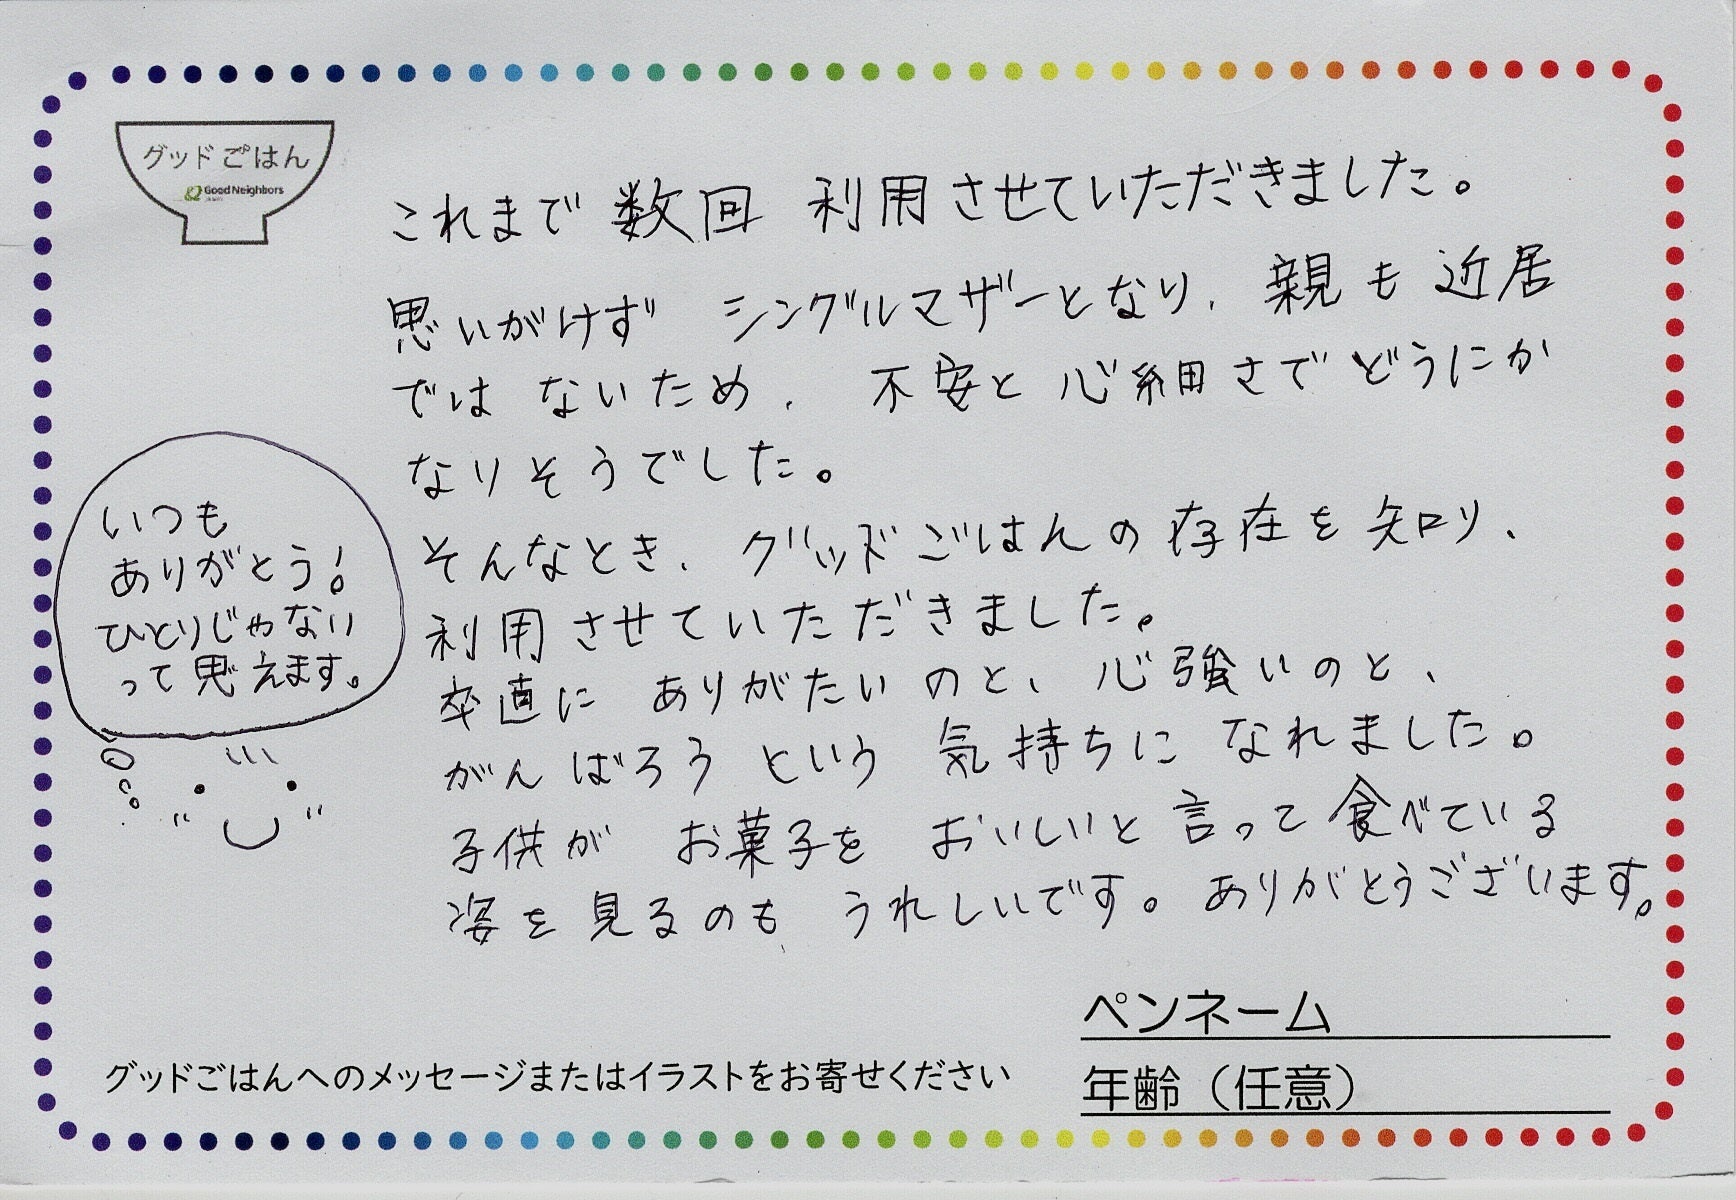 グッドごはん
Good Neighbors
これまで 数回 利用させていただきました。
思いがけず シングルマザーとなり、親も近居
では ないため、不安と心細さでどうにか
なりそうでした。
そんなとき、グッドごはんの存在を知り、
利用させていただきました。
卒直に ありがたいのと、心強いのと、
がんばろう という 気持ちに なれました。
子供が お菓子を おいしいと言って食べている
姿を見るのも うれしいです。ありがとうございます。
いつも
ありがとう!
ひとりじゃない
って思えます。
ペンネーム
グッドごはんへのメッセージまたはイラストをお寄せください
年齢（任意）